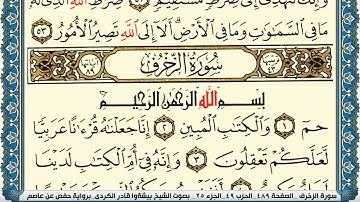 وَإِنَّكَ لَتَهْدِىٓ إِلَىٰ صِرَٰطٍ مُّسْتَقِيمٍ ٥٢ صِرَٰطِ ٱللَّهِ ٱلَّذِى لَهُۥ
مَا فِى ٱلسَّمَٰوَٰتِ وَمَا فِى ٱلْأَرْضِ أَلَآ إِلَى ٱللَّهِ تَصِيرُ ٱلْأُمُورُ ٥٣
سُورَةُ ٱلزُّخْرُفِ
بِسْمِ ٱللَّهِ ٱلرَّحْمَٰنِ ٱلرَّحِيمِ
حمٓ ١ وَٱلْكِتَٰبِ ٱلْمُبِينِ ٢ إِنَّا جَعَلْنَٰهُ قُرْءَٰنًا عَرَبِيًّا
لَّعَلَّكُمْ تَعْقِلُونَ ٣ وَإِنَّهُۥ فِىٓ أُمِّ ٱلْكِتَٰبِ لَدَيْنَا
سورة الزخرف . الصفحة ٤٨٩ . الحزب ٤٩ . الجزء ٢٥ . بصوت الشيخ بيشةوا قادر الكردي . برواية حفص عن عاصم